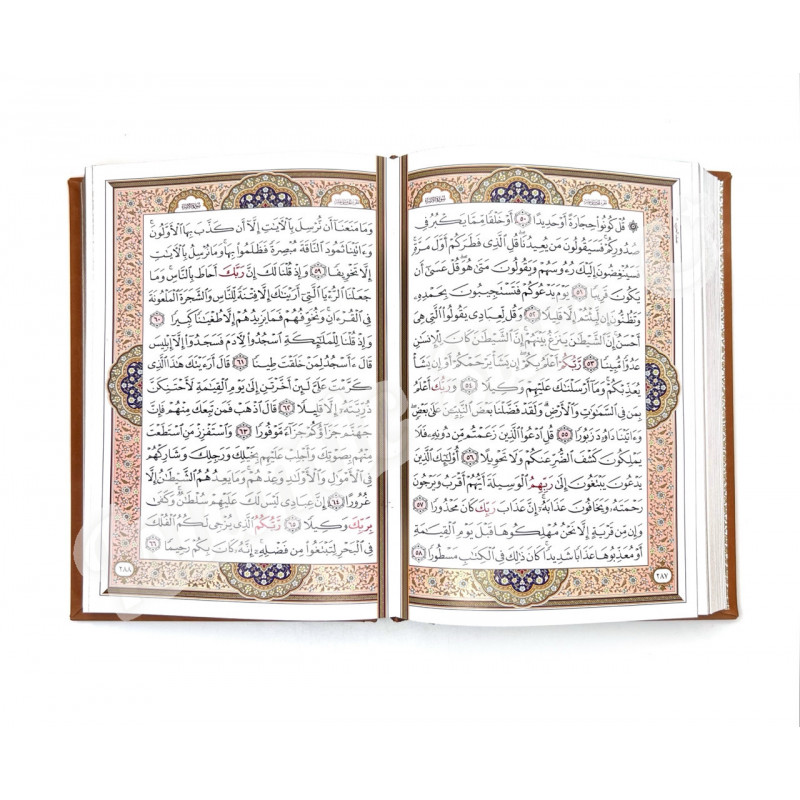 ۞ قُلْ كُونُوا۟ حِجَارَةً أَوْ حَدِيدًا ٥٠ أَوْ خَلْقًا مِّمَّا يَكْبُرُ فِى
صُدُورِكُمْ ۚ فَسَيَقُولُونَ مَن يُعِيدُنَا ۖ قُلِ ٱلَّذِى فَطَرَكُمْ أَوَّلَ مَرَّةٍ ۚ
فَسَيُنْغِضُونَ إِلَيْكَ رُءُوسَهُمْ وَيَقُولُونَ مَتَىٰ هُوَ ۖ قُلْ عَسَىٰٓ أَن
يَكُونَ قَرِيبًا ٥١ يَوْمَ يَدْعُوكُمْ فَتَسْتَجِيبُونَ بِحَمْدِهِۦ
وَتَظُنُّونَ إِن لَّبِثْتُمْ إِلَّا قَلِيلًا ٥٢ وَقُل لِّعِبَادِى يَقُولُوا۟ ٱلَّتِى هِىَ
أَحْسَنُ ۚ إِنَّ ٱلشَّيْطَٰنَ يَنزَغُ بَيْنَهُمْ ۚ إِنَّ ٱلشَّيْطَٰنَ كَانَ لِلْإِنسَٰنِ
عَدُوًّا مُّبِينًا ٥٣ رَّبُّكُمْ أَعْلَمُ بِكُمْ ۖ إِن يَشَأْ يَرْحَمْكُمْ أَوْ إِن يَشَأْ
يُعَذِّبْكُمْ ۚ وَمَآ أَرْسَلْنَٰكَ عَلَيْهِمْ وَكِيلًا ٥٤ وَرَبُّكَ أَعْلَمُ
بِمَن فِى ٱلسَّمَٰوَٰتِ وَٱلْأَرْضِ ۗ وَلَقَدْ فَضَّلْنَا بَعْضَ ٱلنَّبِيِّۦنَ عَلَىٰ بَعْضٍ ۖ
وَءَاتَيْنَا دَاوُۥدَ زَبُورًا ٥٥ قُلِ ٱدْعُوا۟ ٱلَّذِينَ زَعَمْتُم مِّن دُونِهِۦ فَلَا
يَمْلِكُونَ كَشْفَ ٱلضُّرِّ عَنكُمْ وَلَا تَحْوِيلًا ٥٦ أُو۟لَٰٓئِكَ ٱلَّذِينَ
يَدْعُونَ يَبْتَغُونَ إِلَىٰ رَبِّهِمُ ٱلْوَسِيلَةَ أَيُّهُمْ أَقْرَبُ وَيَرْجُونَ
رَحْمَتَهُۥ وَيَخَافُونَ عَذَابَهُۥٓ ۚ إِنَّ عَذَابَ رَبِّكَ كَانَ مَحْذُورًا ٥٧
وَإِن مِّن قَرْيَةٍ إِلَّا نَحْنُ مُهْلِكُوهَا قَبْلَ يَوْمِ ٱلْقِيَٰمَةِ
أَوْ مُعَذِّبُوهَا عَذَابًا شَدِيدًا ۚ كَانَ ذَٰلِكَ فِى ٱلْكِتَٰبِ مَسْطُورًا ٥٨
٢٨٧
وَمَا مَنَعَنَآ أَن نُّرْسِلَ بِٱلْءَايَٰتِ إِلَّآ أَن كَذَّبَ بِهَا ٱلْأَوَّلُونَ ۚ
وَءَاتَيْنَا ثَمُودَ ٱلنَّاقَةَ مُبْصِرَةً فَظَلَمُوا۟ بِهَا ۚ وَمَا نُرْسِلُ بِٱلْءَايَٰتِ
إِلَّا تَخْوِيفًا ٥٩ وَإِذْ قُلْنَا لَكَ إِنَّ رَبَّكَ أَحَاطَ بِٱلنَّاسِ ۚ وَمَا
جَعَلْنَا ٱلرُّءْيَا ٱلَّتِىٓ أَرَيْنَٰكَ إِلَّا فِتْنَةً لِّلنَّاسِ وَٱلشَّجَرَةَ ٱلْمَلْعُونَةَ
فِى ٱلْقُرْءَانِ ۚ وَنُخَوِّفُهُمْ فَمَا يَزِيدُهُمْ إِلَّا طُغْيَٰنًا كَبِيرًا ٦٠
وَإِذْ قُلْنَا لِلْمَلَٰٓئِكَةِ ٱسْجُدُوا۟ لِءَادَمَ فَسَجَدُوٓا۟ إِلَّآ إِبْلِيسَ
قَالَ ءَأَسْجُدُ لِمَنْ خَلَقْتَ طِينًا ٦١ قَالَ أَرَءَيْتَكَ هَٰذَا ٱلَّذِى
كَرَّمْتَ عَلَىَّ لَئِنْ أَخَّرْتَنِ إِلَىٰ يَوْمِ ٱلْقِيَٰمَةِ لَأَحْتَنِكَنَّ
ذُرِّيَّتَهُۥٓ إِلَّا قَلِيلًا ٦٢ قَالَ ٱذْهَبْ فَمَن تَبِعَكَ مِنْهُمْ فَإِنَّ
جَهَنَّمَ جَزَآؤُكُمْ جَزَآءً مَّوْفُورًا ٦٣ وَٱسْتَفْزِزْ مَنِ ٱسْتَطَعْتَ
مِنْهُم بِصَوْتِكَ وَأَجْلِبْ عَلَيْهِم بِخَيْلِكَ وَرَجِلِكَ وَشَارِكْهُمْ
فِى ٱلْأَمْوَٰلِ وَٱلْأَوْلَٰدِ وَعِدْهُمْ ۚ وَمَا يَعِدُهُمُ ٱلشَّيْطَٰنُ إِلَّا
غُرُورًا ٦٤ إِنَّ عِبَادِى لَيْسَ لَكَ عَلَيْهِمْ سُلْطَٰنٌ ۚ وَكَفَىٰ
بِرَبِّكَ وَكِيلًا ٦٥ رَّبُّكُمُ ٱلَّذِى يُزْجِى لَكُمُ ٱلْفُلْكَ
فِى ٱلْبَحْرِ لِتَبْتَغُوا۟ مِن فَضْلِهِۦٓ ۚ إِنَّهُۥ كَانَ بِكُمْ رَحِيمًا ٦٦
٢٨٨